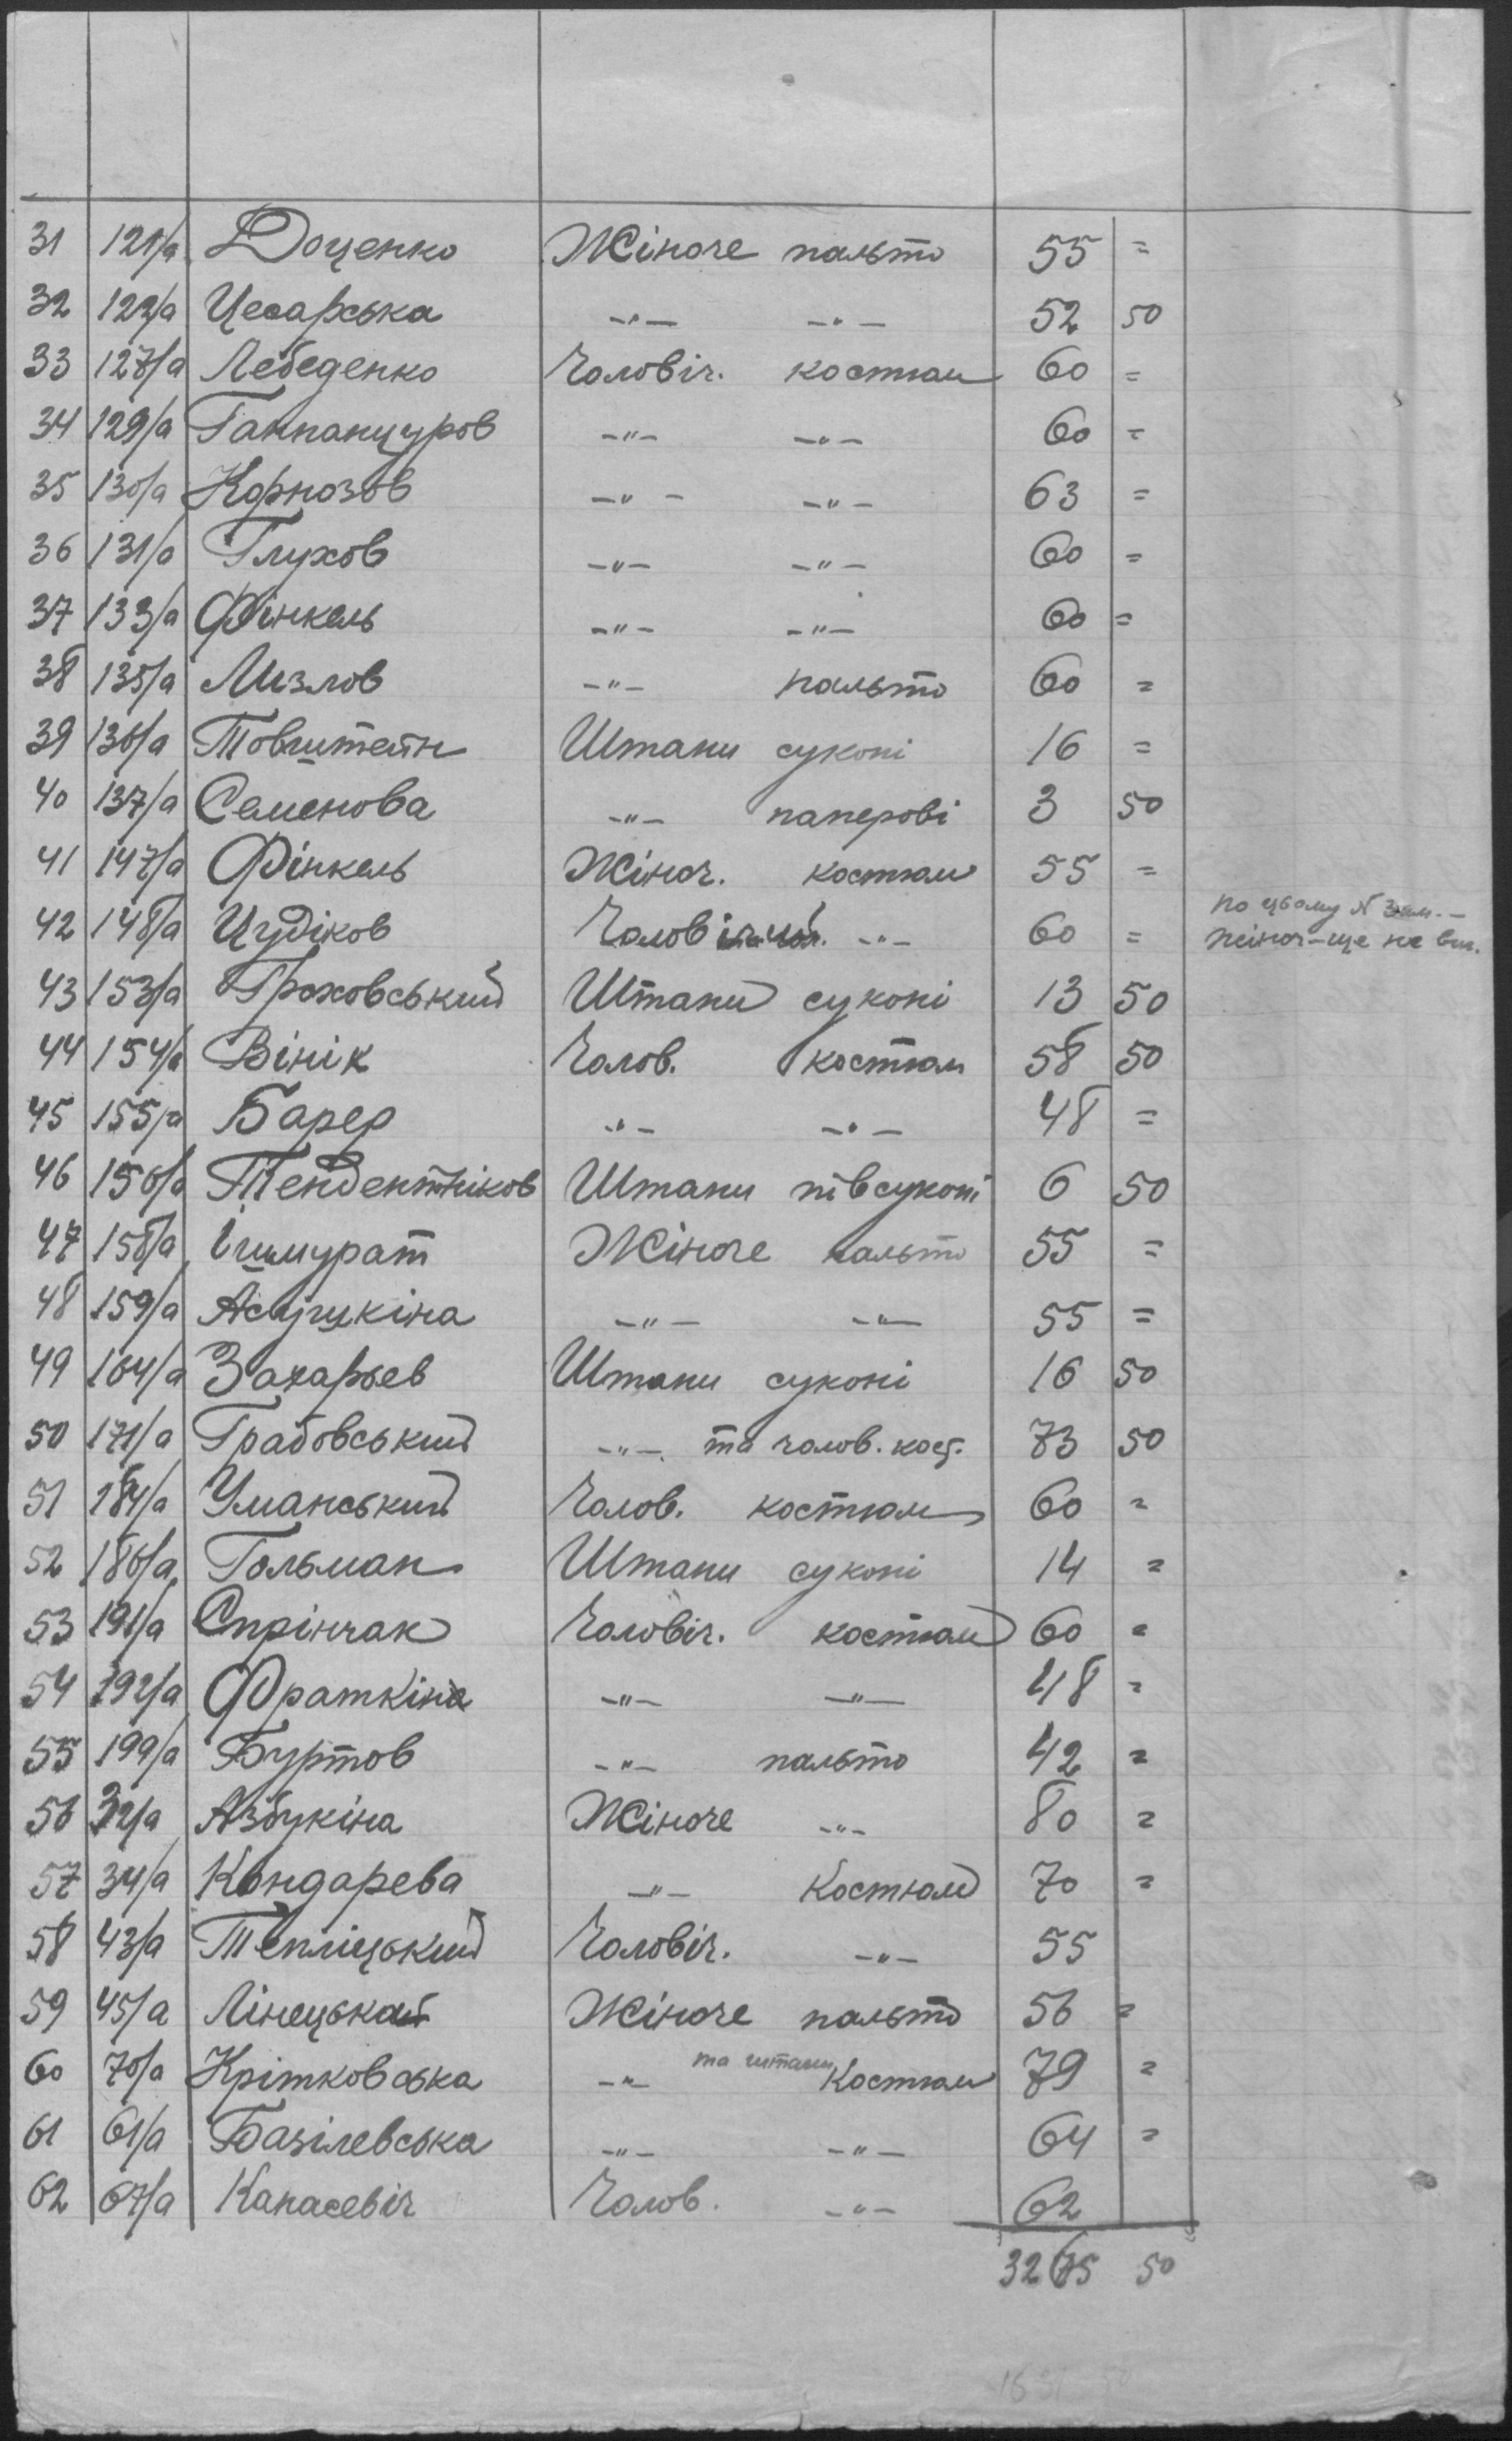 31 121/а Доценко Жіноче пальто 55 =
32 122/а Цесарська -"- -"- 52 50
33 127/а Лебеденко Чоловіч. костюм 60 =
34 129/а Ганпанцуров -"- -"- 60 =
35 130/а Корнозов -"- -"- 63 =
36 131/а Глухов -"- -"- 60 =
37 133/а Фінкель -"- -"- 60 =
38 135/а Мизлов -"- пальто 60 =
39 136/а Товштейн Штани суконі 16 =
40 137/а Семенова -"- паперові 3 50
41 147/а Фінкель Жіноч. костюм 55 =
по цьому № зам. -
42 148/а Цудіков Чоловічий -"- 60 = жіноч-ще не вик.
43 153/а Гроховський Штани суконі 13 50
44 154/а Вінік Чолов. костюм 58 50
45 155/а Барер -"- -"- 48 =
46 156/а Тендентніков Штани півсуконі 6 50
47 158/а Ішмурат Жіноче пальто 55 =
48 159/а -"- -"- 55 =
49 164/а Захарьев Штани суконі 16 50
50 171/а Грабовський -"- та чолов. кост. 73 50
51 184/а Уманський Чолов. костюм 60 =
52 186/а Гольман Штани суконі 14 =
53 191/а Спрінчак Чоловіч. костюм 60 =
54 192/а Фраткіна -"- -"- 48 =
55 199/а Буртов -"- пальто 42 =
56 32/а Азбукіна Жіноче -"- 80 =
57 34/а Кондарева -"- Костюм 70 =
58 43/а Тепліцький Чоловіч. -"- 55
59 45/а Лінецькая Жіноче пальто 56 =
60 70/а Крітковська -"- та штани Костюм 79 =
61 61/а Базілевська -"- -"- 64 =
62 67/а Капасевіч Чолов. -"- 62
3265 50